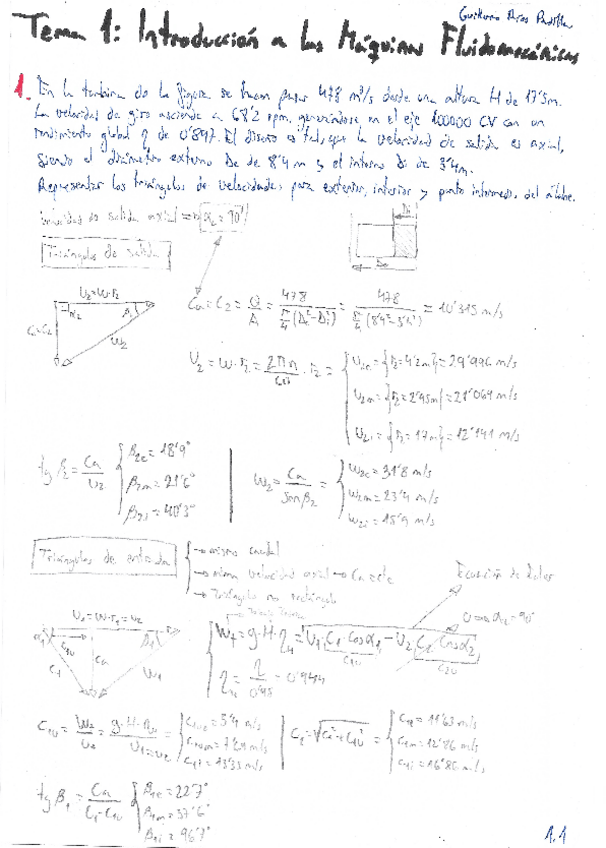 Guillermo Rios Padilla
Tema 1: Introducción a las Máquinas Fluidomecánicas
1. En la turbina de la figura se hacen pasar 478 m³/s desde una altura H de 17'5m.
La velocidad de giro asciende a 68'2 rpm, generándose en el eje 100000 CV con un
rendimiento global η de 0'897. El diseño es tal, que la velocidad de salida es axial,
siendo el diámetro externo De de 8'4 m y el interno Di de 3'4m.
Representar los triángulos de velocidades para exterior, interior y punto intermedio del álabe.
velocidad de salida axial ⇒ α₂ = 90°
Di
Triángulos de salida
De
U₂=W·r₂
α₂ β₂
C₂=Ca W₂
Ca = C₂ = Q/A = 478/(π/4 (De²-Di²)) = 478/(π/4 (8'4²-3'4²)) = 10'315 m/s
U₂ = W·r₂ = 2πn/60 · r₂ =
U₂e = {r₂=4'2m} = 29'996 m/s
U₂m = {r₂=2'95m} = 21'069 m/s
U₂i = {r₂=1'7m} = 12'141 m/s
tg β₂ = Ca/U₂
β₂e = 18'9°
β₂m = 21'6°
β₂i = 40'3°
W₂ = Ca/sen β₂ =
W₂e = 31'8 m/s
W₂m = 23'4 m/s
W₂i = 15'9 m/s
Triángulos de entrada
→ mismo caudal
→ misma velocidad axial → Ca = cte
→ Triángulo no rectángulo
Ecuación de Euler
U₁=W·r₁=U₂
α₁ C₁u β₁
C₁ Ca W₁
W₁ = g·H·η₁ = U₁ C₁ cosα₁ - U₂ C₂ cosα₂
C₁u C₂u
0 ⇒ α₂=90°
= η/0'95 = 0'944
C₁u = g·H·η/U₁=U₂ =
C₁ue = 5'4 m/s
C₁um = 7'69 m/s
C₁ui = 13'33 m/s
C₁ = √(Ca²+C₁u²) =
C₁e = 11'63 m/s
C₁m = 12'86 m/s
C₁i = 16'86 m/s
tg β₁ = Ca/(U₁-C₁u)
β₁e = 22'7°
β₁m = 37'6°
β₁i = 96'7°
1.1